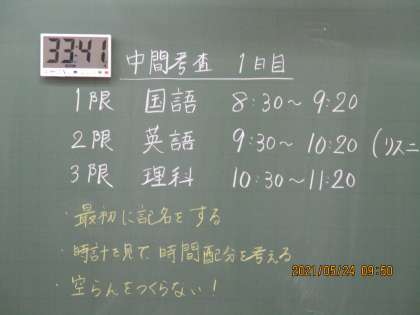 33:41
中間考査 1日目
1限 国語 8:30～9:20
2限 英語 9:30～10:20 (リスニ
3限 理科 10:30～11:20
・最初に記名をする
・時計を見て時間配分を考える
・空らんをつくらない!
2021/05/24 09:50